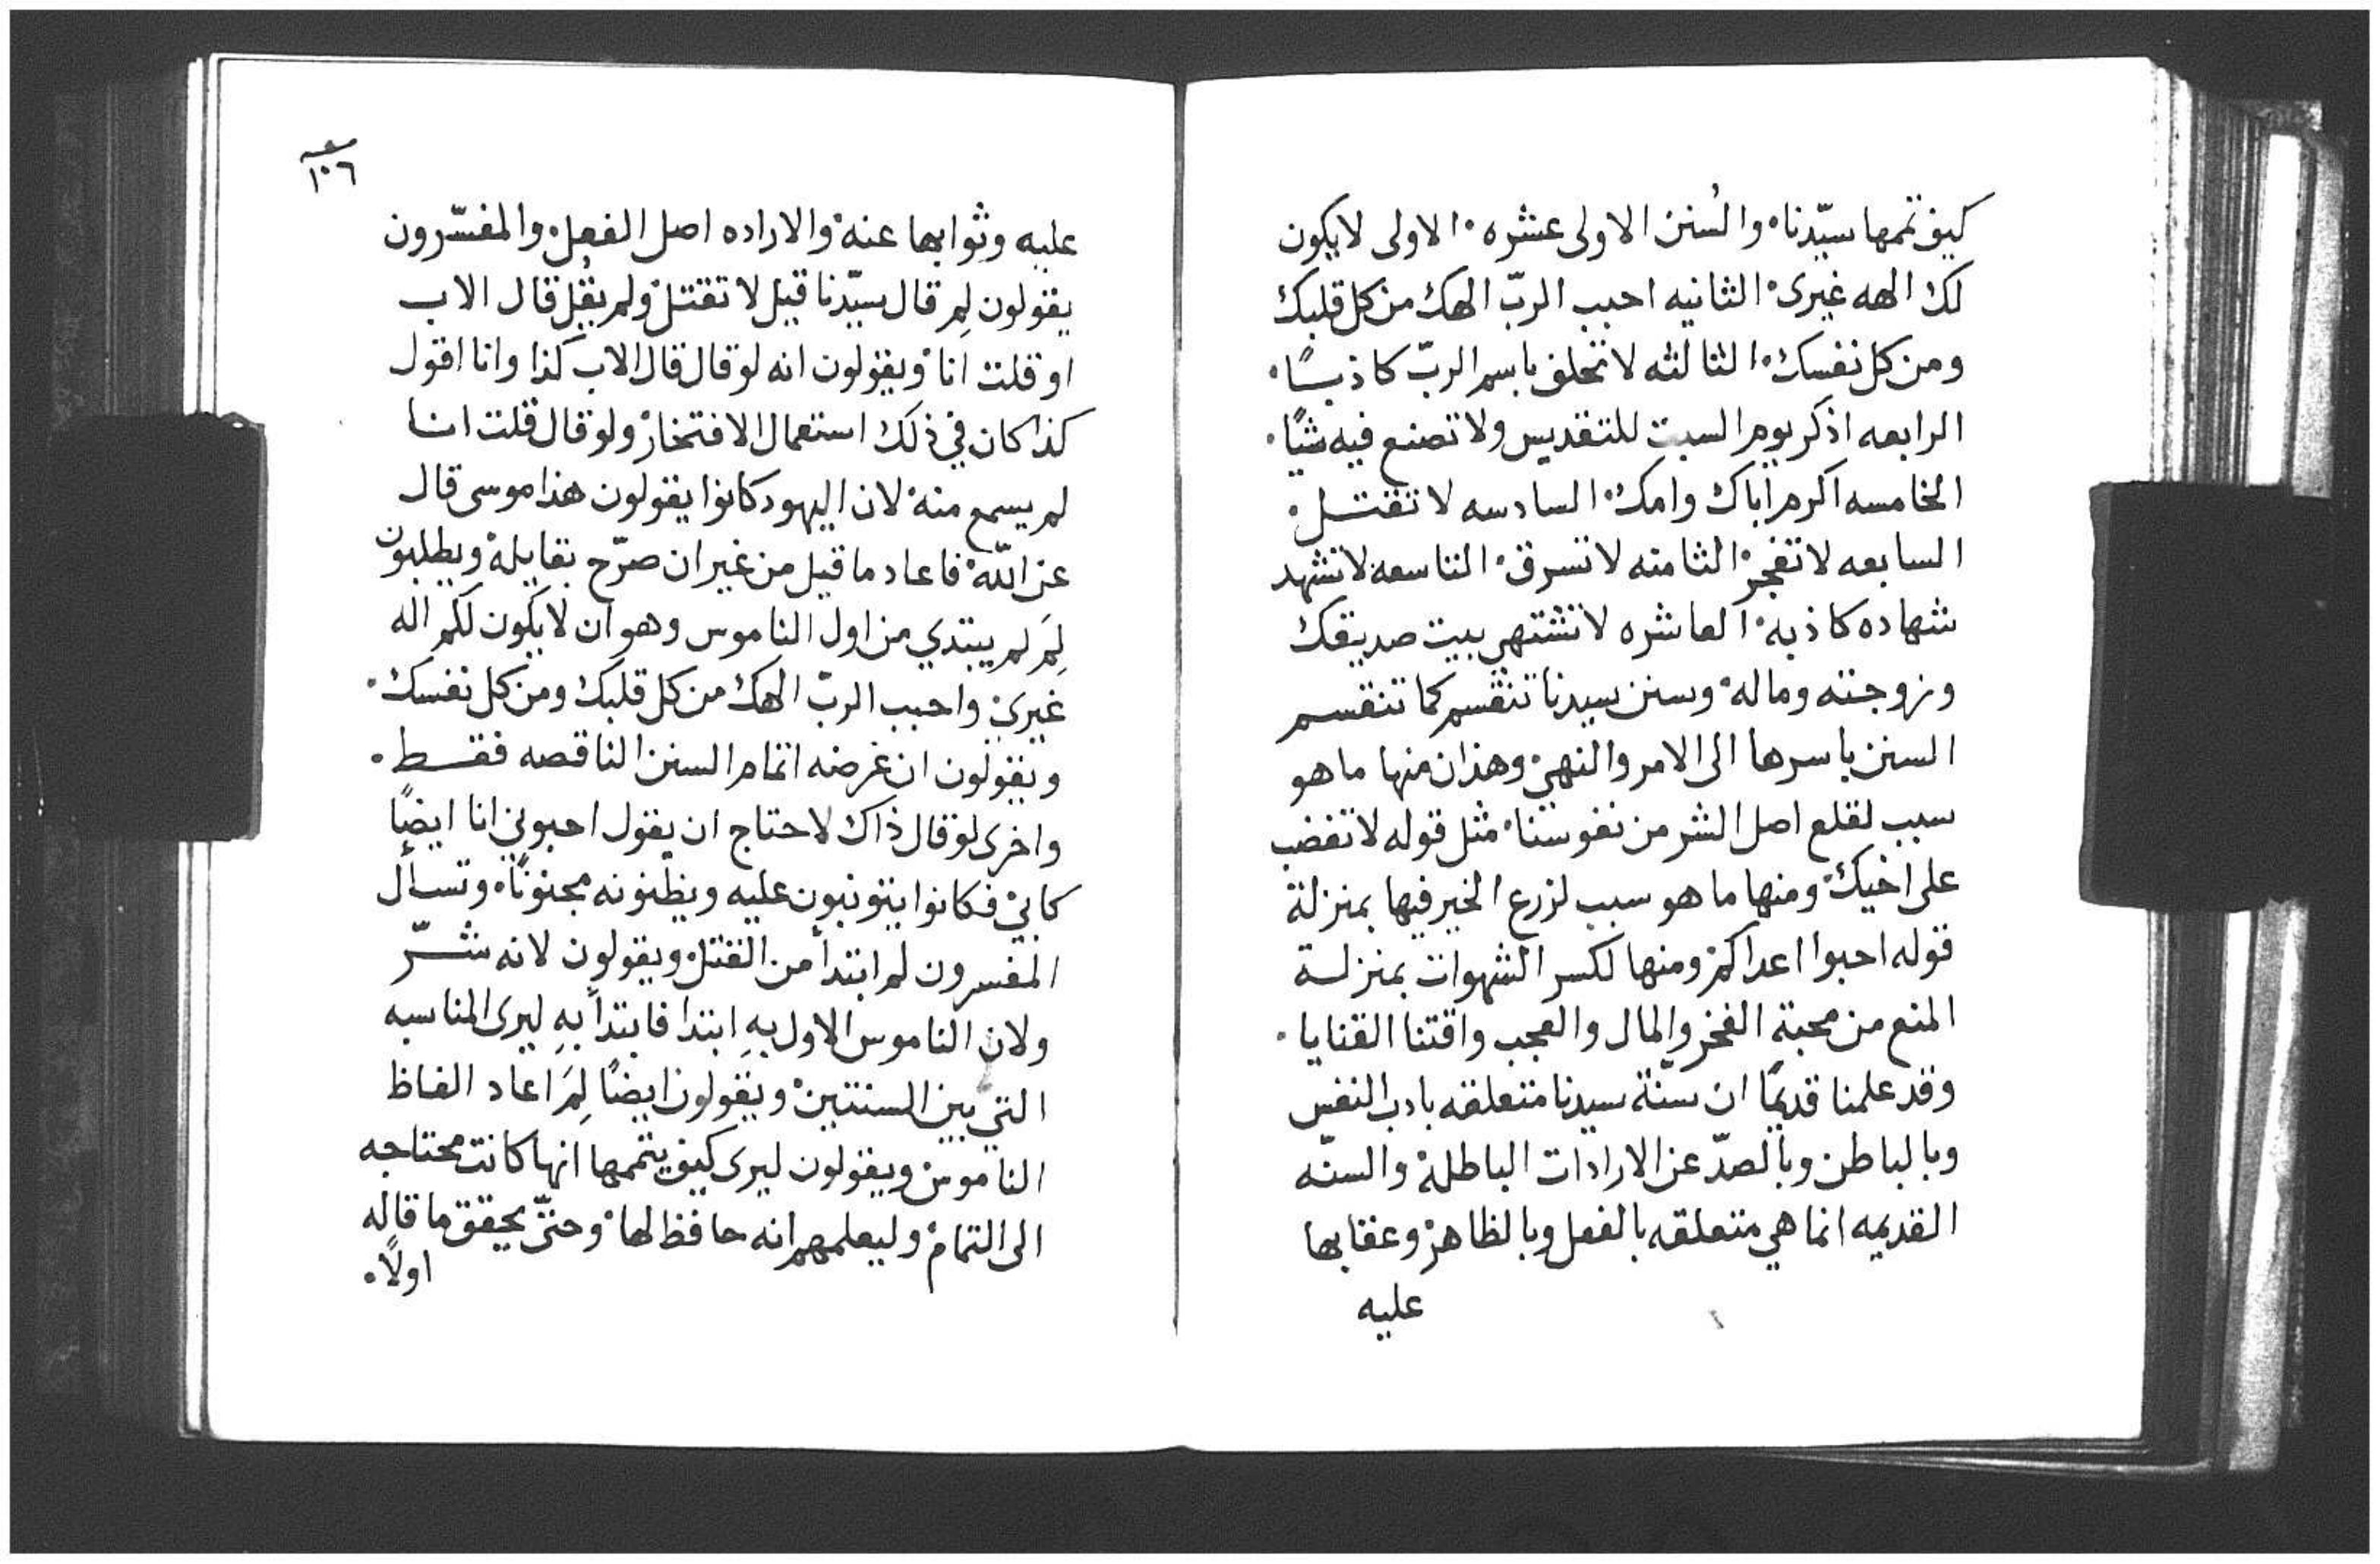 كيف تممها سيّدنا والسُنن الاولى عشره الاولى لا يكون
لك الهه غيرى الثانيه احبب الربّ الهك من كل قلبك
ومن كل نفسك الثالثه لا تحلف باسم الربّ كاذبًا
الرابعه اذكر يوم السبت للتقديس ولا تصنع فيه شيًا
الخامسه اكرم اباك وامك السادسه لا تقتل
السابعه لا تفجر الثامنه لا تسرق التاسعه لا تشهد
شهاده كاذبه العاشره لا تشتهي بيت صديقك
وزوجته وماله وسنن سيدنا تنقسم كما تنقسم
السنن باسرها الى الامر والنهي وهذان منها ما هو
سبب لقلع اصل الشر من نفوسنا مثل قوله لا تغضب
على اخيك ومنها ما هو سبب لزرع الخير فيها بمنزلة
قوله احبوا اعداكم ومنها لكسر الشهوات بمنزلة
المنع من محبة الفخر والمال والعجب واقتنا القنايا
وقد علمنا قديمًا ان سنّة سيدنا متعلقه بادب النفس
وبالباطن وبالصدّ عن الارادات الباطلة والسنّه
القديمه انما هي متعلقه بالفعل وبالظاهر وعقابها
عليه
١٠٦
عليه وثوابها عنه والاراده اصل الفعل والمفسّرون
يقولون لِم قال سيّدنا قيل لا تقتل ولم يقُل قال الاب
او قلت انا ويقولون انه لو قال قال الاب كذا وانا اقول
كذا كان في ذلك استعمال الافتخار ولو قال قلت انا
لم يسمع منه لان اليهود كانوا يقولون هذا موسى قال
عن الله فاعاد ما قيل من غير ان صرّح بقايله ويطلبون
لِمَ لم يبتدي من اول الناموس وهو ان لا يكون لكم اله
غيرى واحبب الربّ الهك من كل قلبك ومن كل نفسك
ويقولون ان غرضه اتمام السنن الناقصه فقط
واخرى لو قال ذاك لاحتاج ان يقول احبوني انا ايضًا
كابي فكانوا يثوبون عليه ويظنونه مجنونًا وتسأل
المفسرون لم ابتدأ من القتل ويقولون لانه شرّ
ولان الناموس الاول بهِ ابتدا فابتدأ بهِ ليرى المناسبه
التي بين السنتين ويقولون ايضًا لِمَ اعاد الفاظ
الناموس ويقولون ليرى كيف يتممها انها كانت محتاجه
الى التمام وليعلمهم انه حافظ لها وحتّى يحقق ما قاله
اولًا